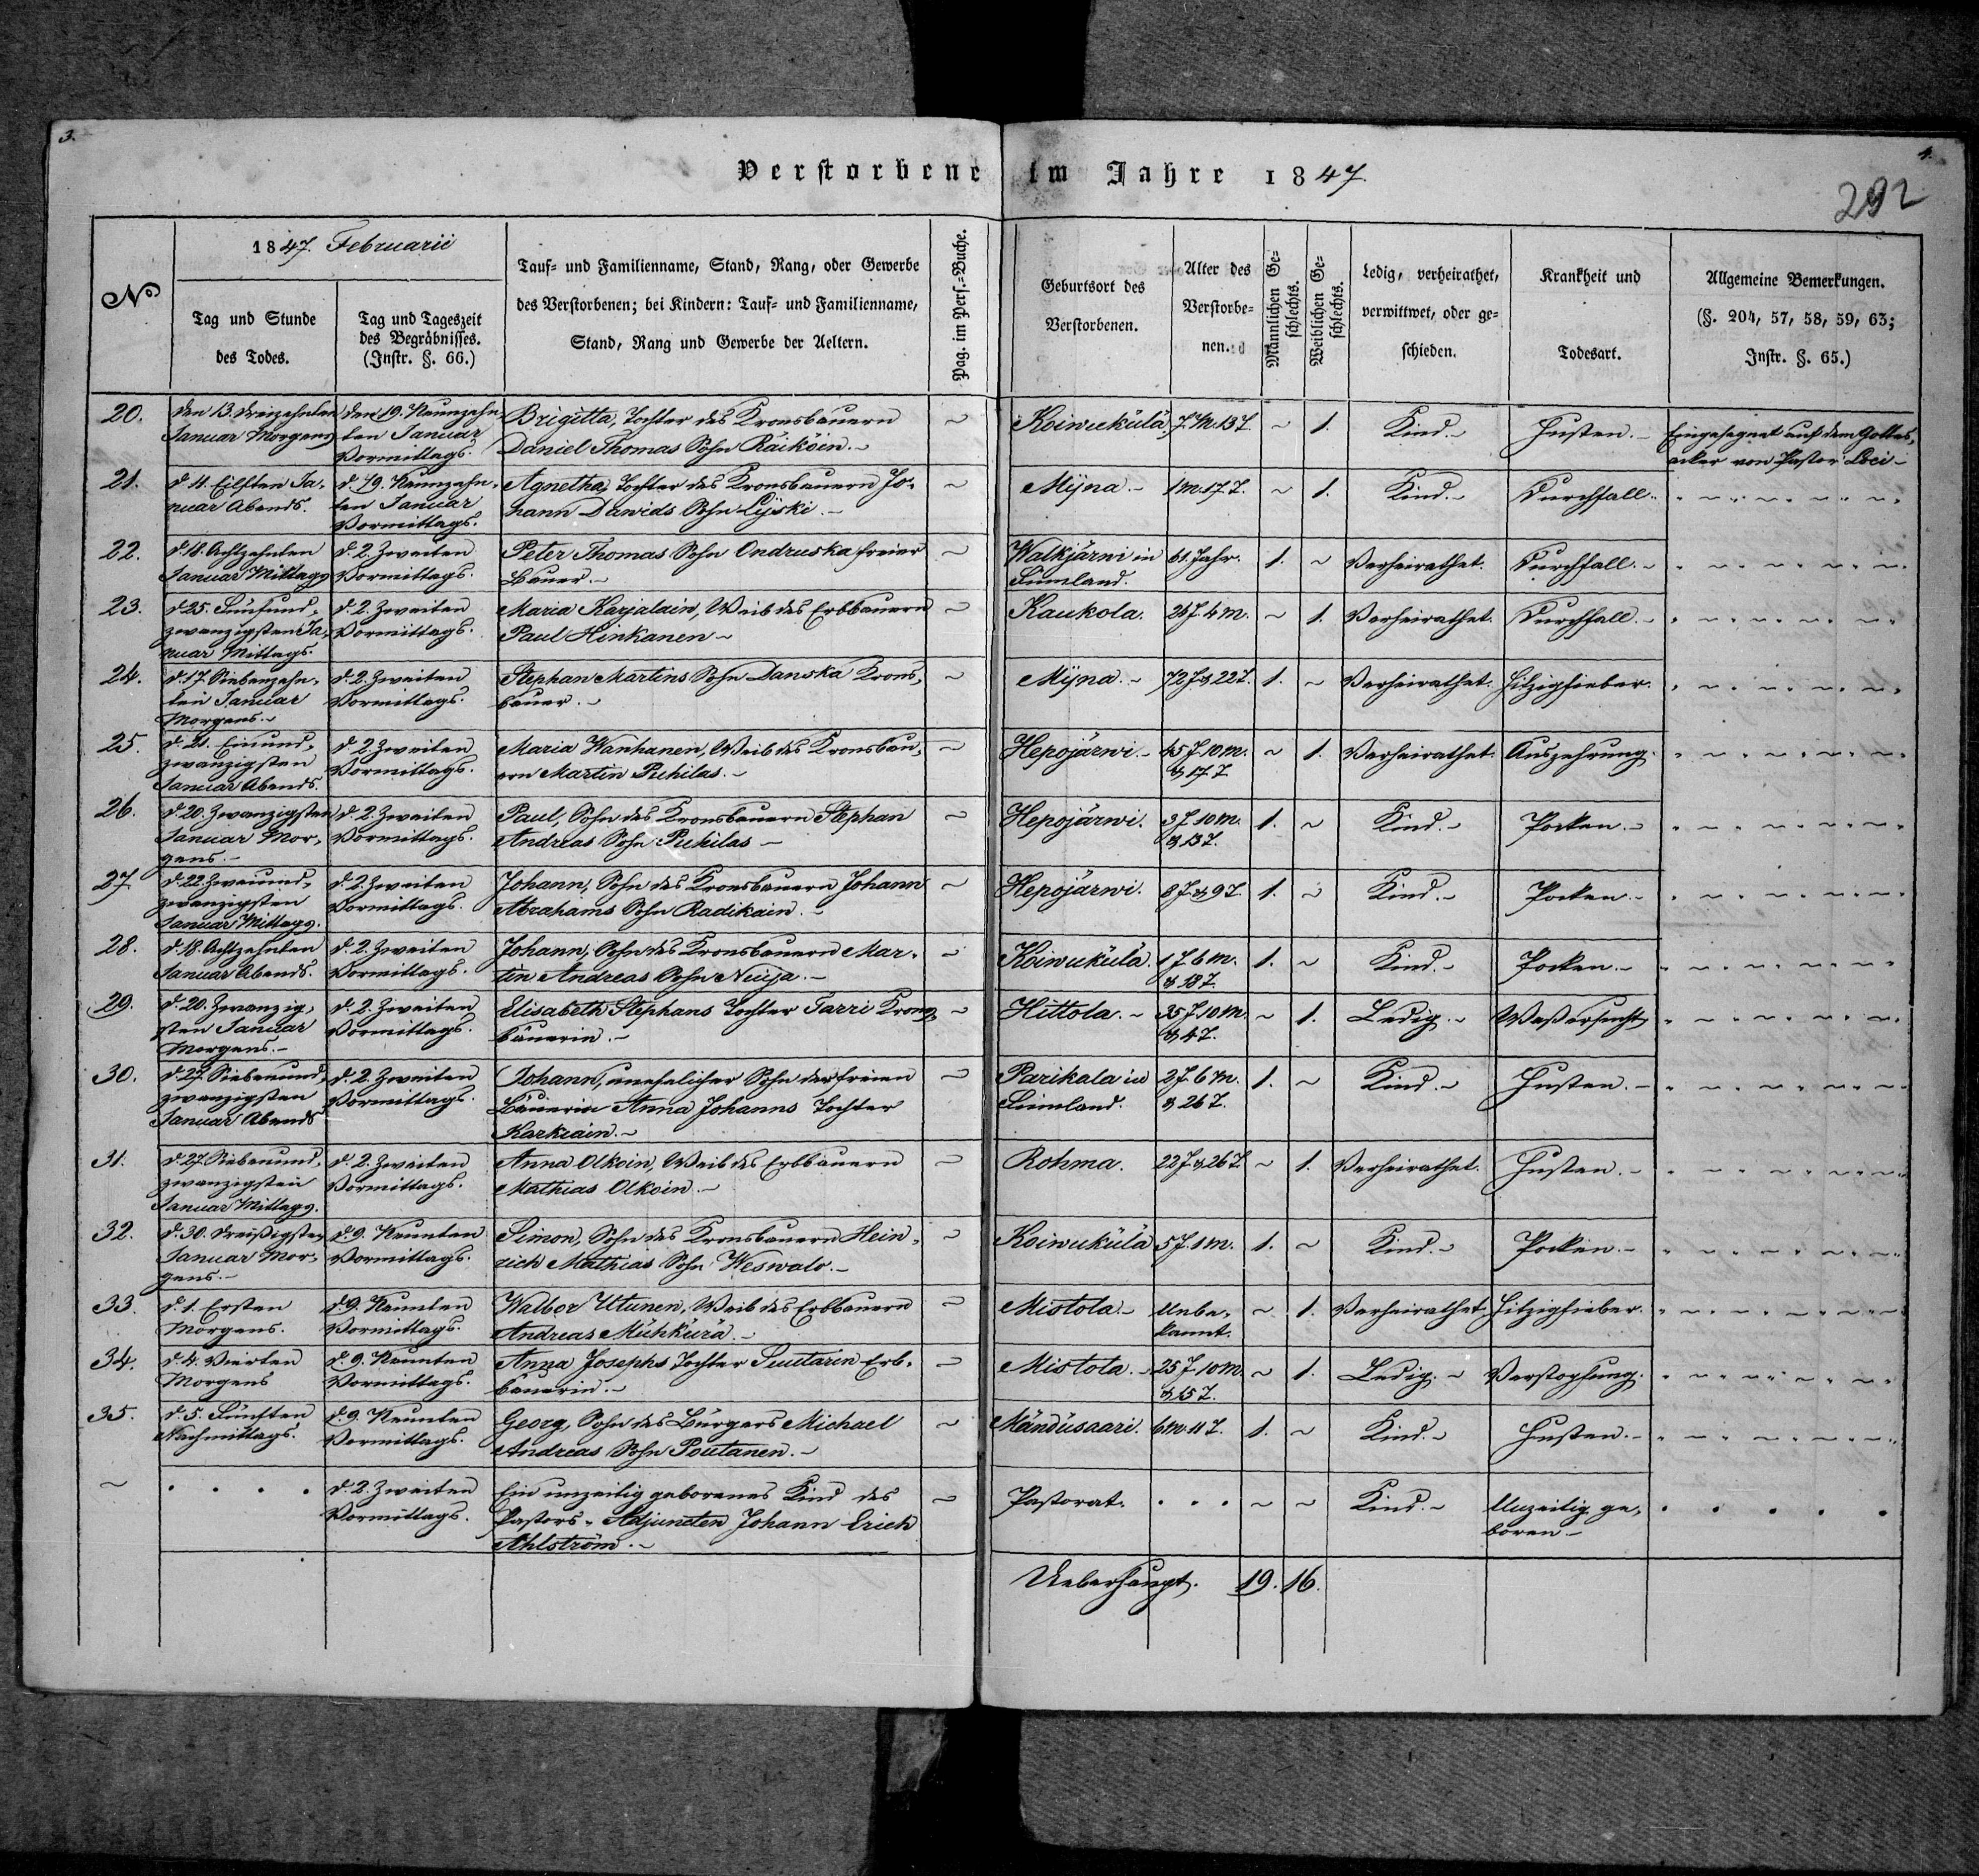 3.
4.
Verstorbene im Jahre 1847.
292
No
1847. Februarii
Tag und Stunde
des Todes.
Tag und Tageszeit
des Begräbnisses.
(Instr. §. 66.)
Tauf- und Familienname, Stand, Rang, oder Gewerbe
des Verstorbenen; bei Kindern: Tauf- und Familienname,
Stand, Rang und Gewerbe der Aeltern.
Pag. im Pers.-Buche.
Geburtsort des
Verstorbenen.
Alter des
Verstorbe-
nen.
Männlichen Ge-
schlechts.
Weiblichen Ge-
schlechts.
Ledig, verheirathet,
verwittwet, oder ge-
schieden.
Krankheit und
Todesart.
Allgemeine Bemerkungen.
(§. 204, 57, 58, 59, 63;
Instr. §. 65.)
20.
Den 13. Dreizehnten
Januar Morgens
Den 19. Neunzehn-
ten Januar
Vormittags.
Brigitta, Tochter des Kronsbauern
Daniel Thomas Sohn Räiköin.
Koiwuküla
7 M. 13 T.
1.
Kind.
Husten.
Eingesegnet auf dem Gottes-
acker von Pastor Loci
21.
d. 11. Eilften Ja-
nuar Abends.
d. 19. Neunzehn-
ten Januar
Vormittags.
Agnetha, Tochter des Kronsbauern Jo-
hann Dawids Sohn Lijski.
Mijna.
1 M. 17 T.
1.
Kind.
Durchfall.
22.
d. 18. Achtzehnten
Januar Mittags
d. 2. Zweiten
Vormittags.
Peter Thomas Sohn Ondruska freier
Bauer.
Walkjärwi in
Finnland.
61 Jahr.
1.
Verheirathet.
Durchfall.
23.
d. 25. Fünfund-
zwanzigsten Ja-
nuar Mittags.
d. 2. Zweiten
Vormittags.
Maria Karjalain, Weib des Erbbauern
Paul Hinkanen
Kaukola.
26 J. 4 M.
1.
Verheirathet.
Durchfall.
24.
d. 17. Siebenzehn-
ten Januar
Morgens.
d. 2. Zweiten
Vormittags.
Stephan Martins Sohn Danska Krons-
bauer.
Mijna.
72 J. & 22 T.
1.
Verheirathet.
Hitzigfieber.
25.
d. 21. Einund-
zwanzigsten
Januar Abends.
d. 2. Zweiten
Vormittags.
Maria Wanhanen, Weib des Kronsbau-
ern Martin Puhilas.
Hepojärwi.
45 J. 10 M.
& 17 T.
1.
Verheirathet.
Auszehrung.
26.
d. 20. Zwanzigsten
Januar Mor-
gens.
d. 2. Zweiten
Vormittags.
Paul, Sohn des Kronsbauern Stephan
Andreas Sohn Puhilas
Hepojärwi.
3 J. 10 M.
& 13 T.
1.
Kind.
Pocken.
27
d. 22. Zweiund-
zwanzigsten
Januar Mittags.
d. 2. Zweiten
Vormittags.
Johann, Sohn des Kronsbauern Johann
Abrahams Sohn Radikain.
Hepojärwi.
8 J. & 9 T.
1.
Kind.
Pocken.
28.
d. 18. Achtzehnten
Januar Abends.
d. 2. Zweiten
Vormittags.
Johann, Sohn des Kronsbauern Mar-
tin Andreas Sohn Neuja.
Koiwuküla.
1 J. 6 M.
& 18 T.
1.
Kind.
Pocken.
29.
d. 20. Zwanzig-
sten Januar
Morgens.
d. 2. Zweiten
Vormittags.
Elisabeth Stephans Tochter Tarri Krons-
bäuerin.
Hittola.
35 J. 10 M.
& 4 T.
1.
Ledig.
Wassersucht
30.
d. 27. Siebenund-
zwanzigsten
Januar Abends
d. 2. Zweiten
Vormittags.
Johann, unehelicher Sohn der freien
Bäuerin Anna Johanns Tochter
Karkiain.
Parikala in
Finnland.
2 J. 6 M.
& 26 T.
1.
Kind.
Husten.
31.
d. 27. Siebenund-
zwanzigsten
Januar Mittags.
d. 2. Zweiten
Vormittags.
Anna Olkoin, Weib des Erbbauern
Mathias Olkoin.
Rohma.
22 J. & 26 T.
1.
Verheirathet.
Husten.
32.
d. 30. Dreißigsten
Januar Mor-
gens.
d. 9. Neunten
Vormittags.
Simon, Sohn des Kronsbauern Hein-
rich Mathias Sohn Weswalo.
Koiwuküla
5 J. 1 M.
1.
Kind.
Pocken.
33.
d. 1. Ersten
Morgens.
d. 9. Neunten
Vormittags.
Walbor Utunen, Weib des Erbbauern
Andreas Mühkürä.
Mistola
Unbe-
kannt.
1.
Verheirathet.
Hitzigfieber.
34.
d. 4. Vierten
Morgens
d. 9. Neunten
Vormittags.
Anna Josephs Tochter Suutarin Erb-
bäuerin.
Mistola.
25 J. 10 M.
& 15 T.
1.
Ledig.
Verstopfung.
35.
d. 5. Fünften
Nachmittags.
d. 9. Neunten
Vormittags.
Georg, Sohn des Bürgers Michael
Andreas Sohn Poutanen.
Mändüsaari.
6 M. 11 T.
1.
Kind.
Husten.
d. 2. Zweiten
Vormittags.
Ein unzeitig geborenes Kind des
Pastors-Adjuncten Johann Erich
Ahlström.
Pastorat.
Kind.
Unzeitig ge-
boren
Ueberhaupt. 19. 16.